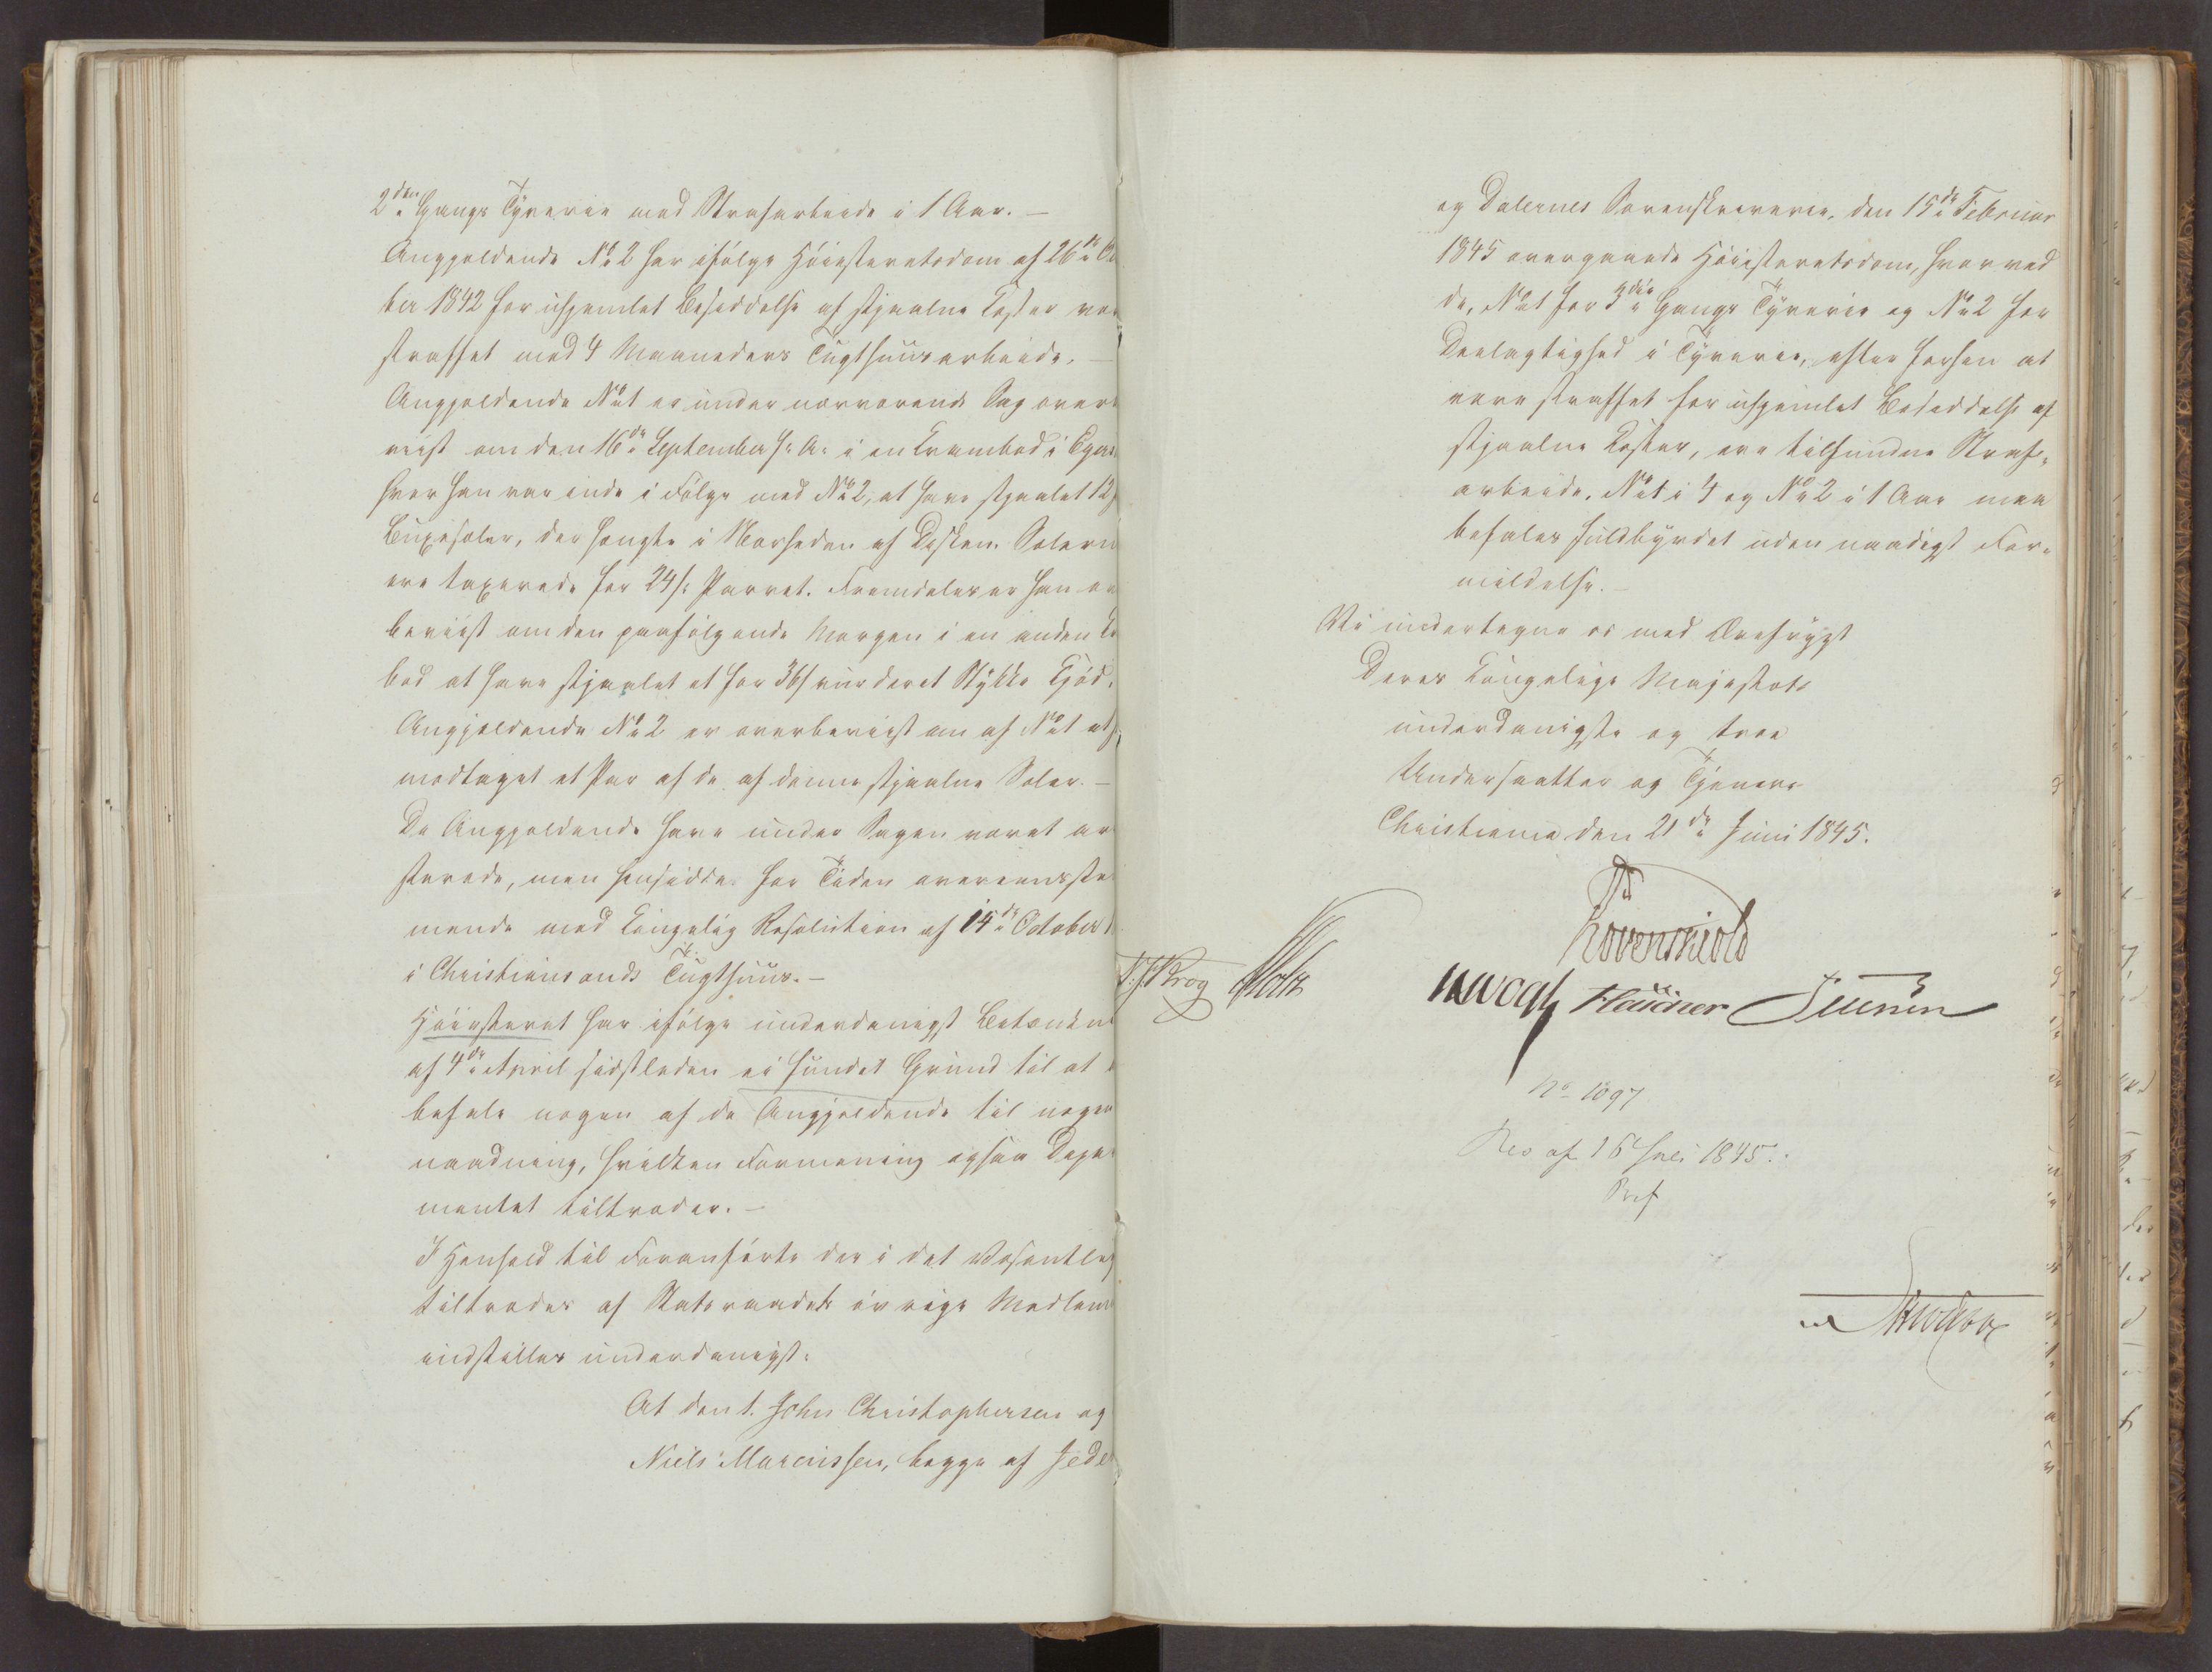 2den Gangs Tyverie med Strafarbeide i 1 Aar. –
Angjeldende No 2 har ifølge Høiesteretsdom af 26de Oc
ber 1842 for uhjemlet Besiddelse af stjaalne Koster væ
straffet med 4 Maaneders Tugthuusarbeide. –
Angjeldende No 1 er under nærværende Sag over
viist om den 16de September f: A: i en Krambod i Eger
hvor han var inde i Følge med No 2, at have stjaalet 12
Buxeseler, der hængte i Nærheden af Disken. Selerne
ere taxerede for 24 s: Parret. Fremdeles er han o
beviist om den paafølgende Morgen i en anden Kr
bod at have stjaalet et for 36 s vurderet Stykke Kjød.
Angjeldende No 2 er overbeviist om af No 1 at
modtaget et Par af de af denne stjaalne Seler. –
De Angjeldende have under Sagen været ar
sterede, men hensidde for Tiden overeensste
mende med Kongelig Resolution af 14de October
i Christiansands Tugthuus. –
Høiesteret har ifølge underdanigst Betænkn
af 4de April sidstleden ei fundet Grund til at
befale nogen af de Angjeldende til nogen
naadning, hvilken Formening ogsaa Depa
mentet tiltræder. –
I Henhold til Foranførte der i det Væsentlig
tiltrædes af Statsraadets øvrige Medlem
indstilles underdanigst:
At den 1. John Christophersen og
Niels Marcussen, begge af Jede
og Dalernes Sorenskriverie, den 15de Februar
1845 overgaaede Høiesteretsdom, hvorved
de, No 1 for 3die Gangs Tyverie og No 2 for
Deelagtighed i Tyverie, efter forhen at
være straffet for uhjemlet Besiddelse af
stjaalne Koster, ere tilfundne Straf-
arbeide, No 1 i 4 og No 2 i 1 Aar maa
befales fuldbyrdet uden naadigst For-
mildelse. –
Vi undertegne os med Ærefrygt
Deres Kongelige Majestæts
underdanigste og troe
Undersaatter og Tjenere
Christiania den 21de Juni 1845.
Løvenskiold
F. J. Krog Holst Vogt
No 1097
Res af 16 Juli 1845.